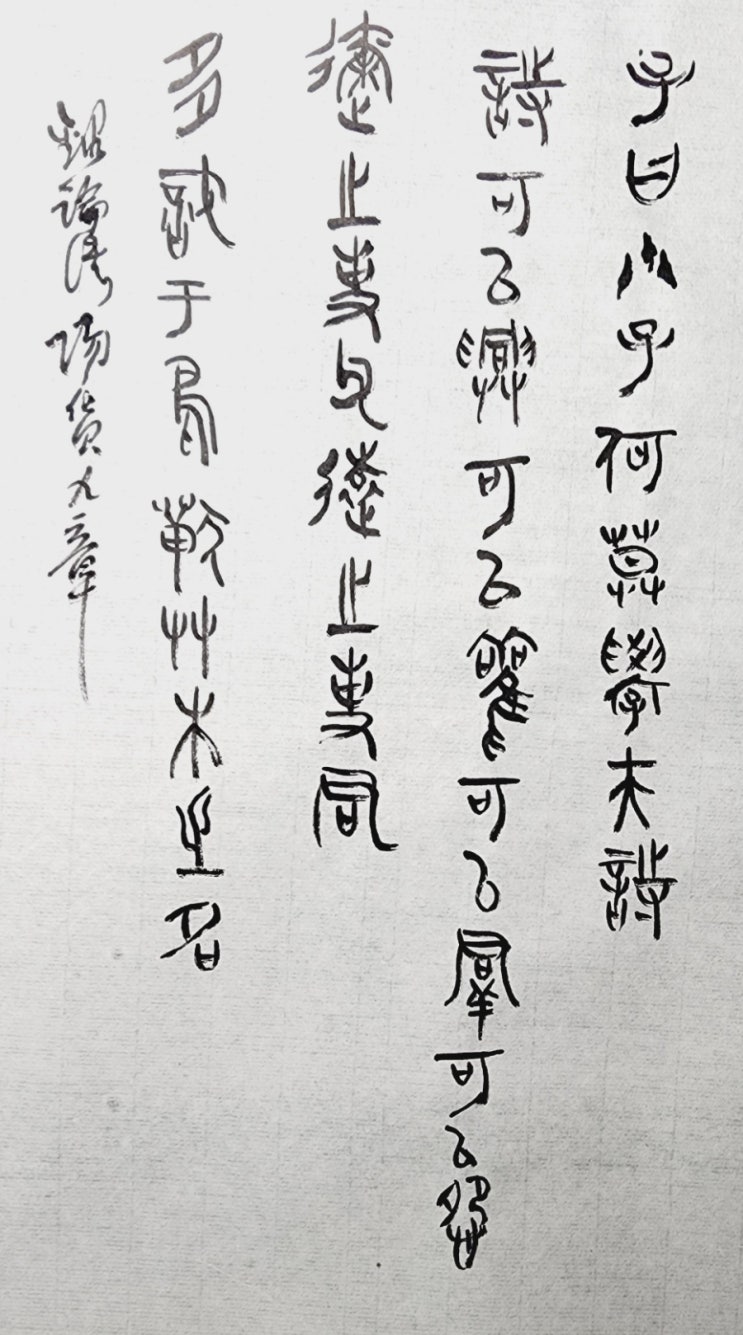 子曰小子何莫學夫詩
詩可以興可以觀可以羣可以怨
邇之事父遠之事君
多識于鳥獸艸木之名
錄論語陽貨九章